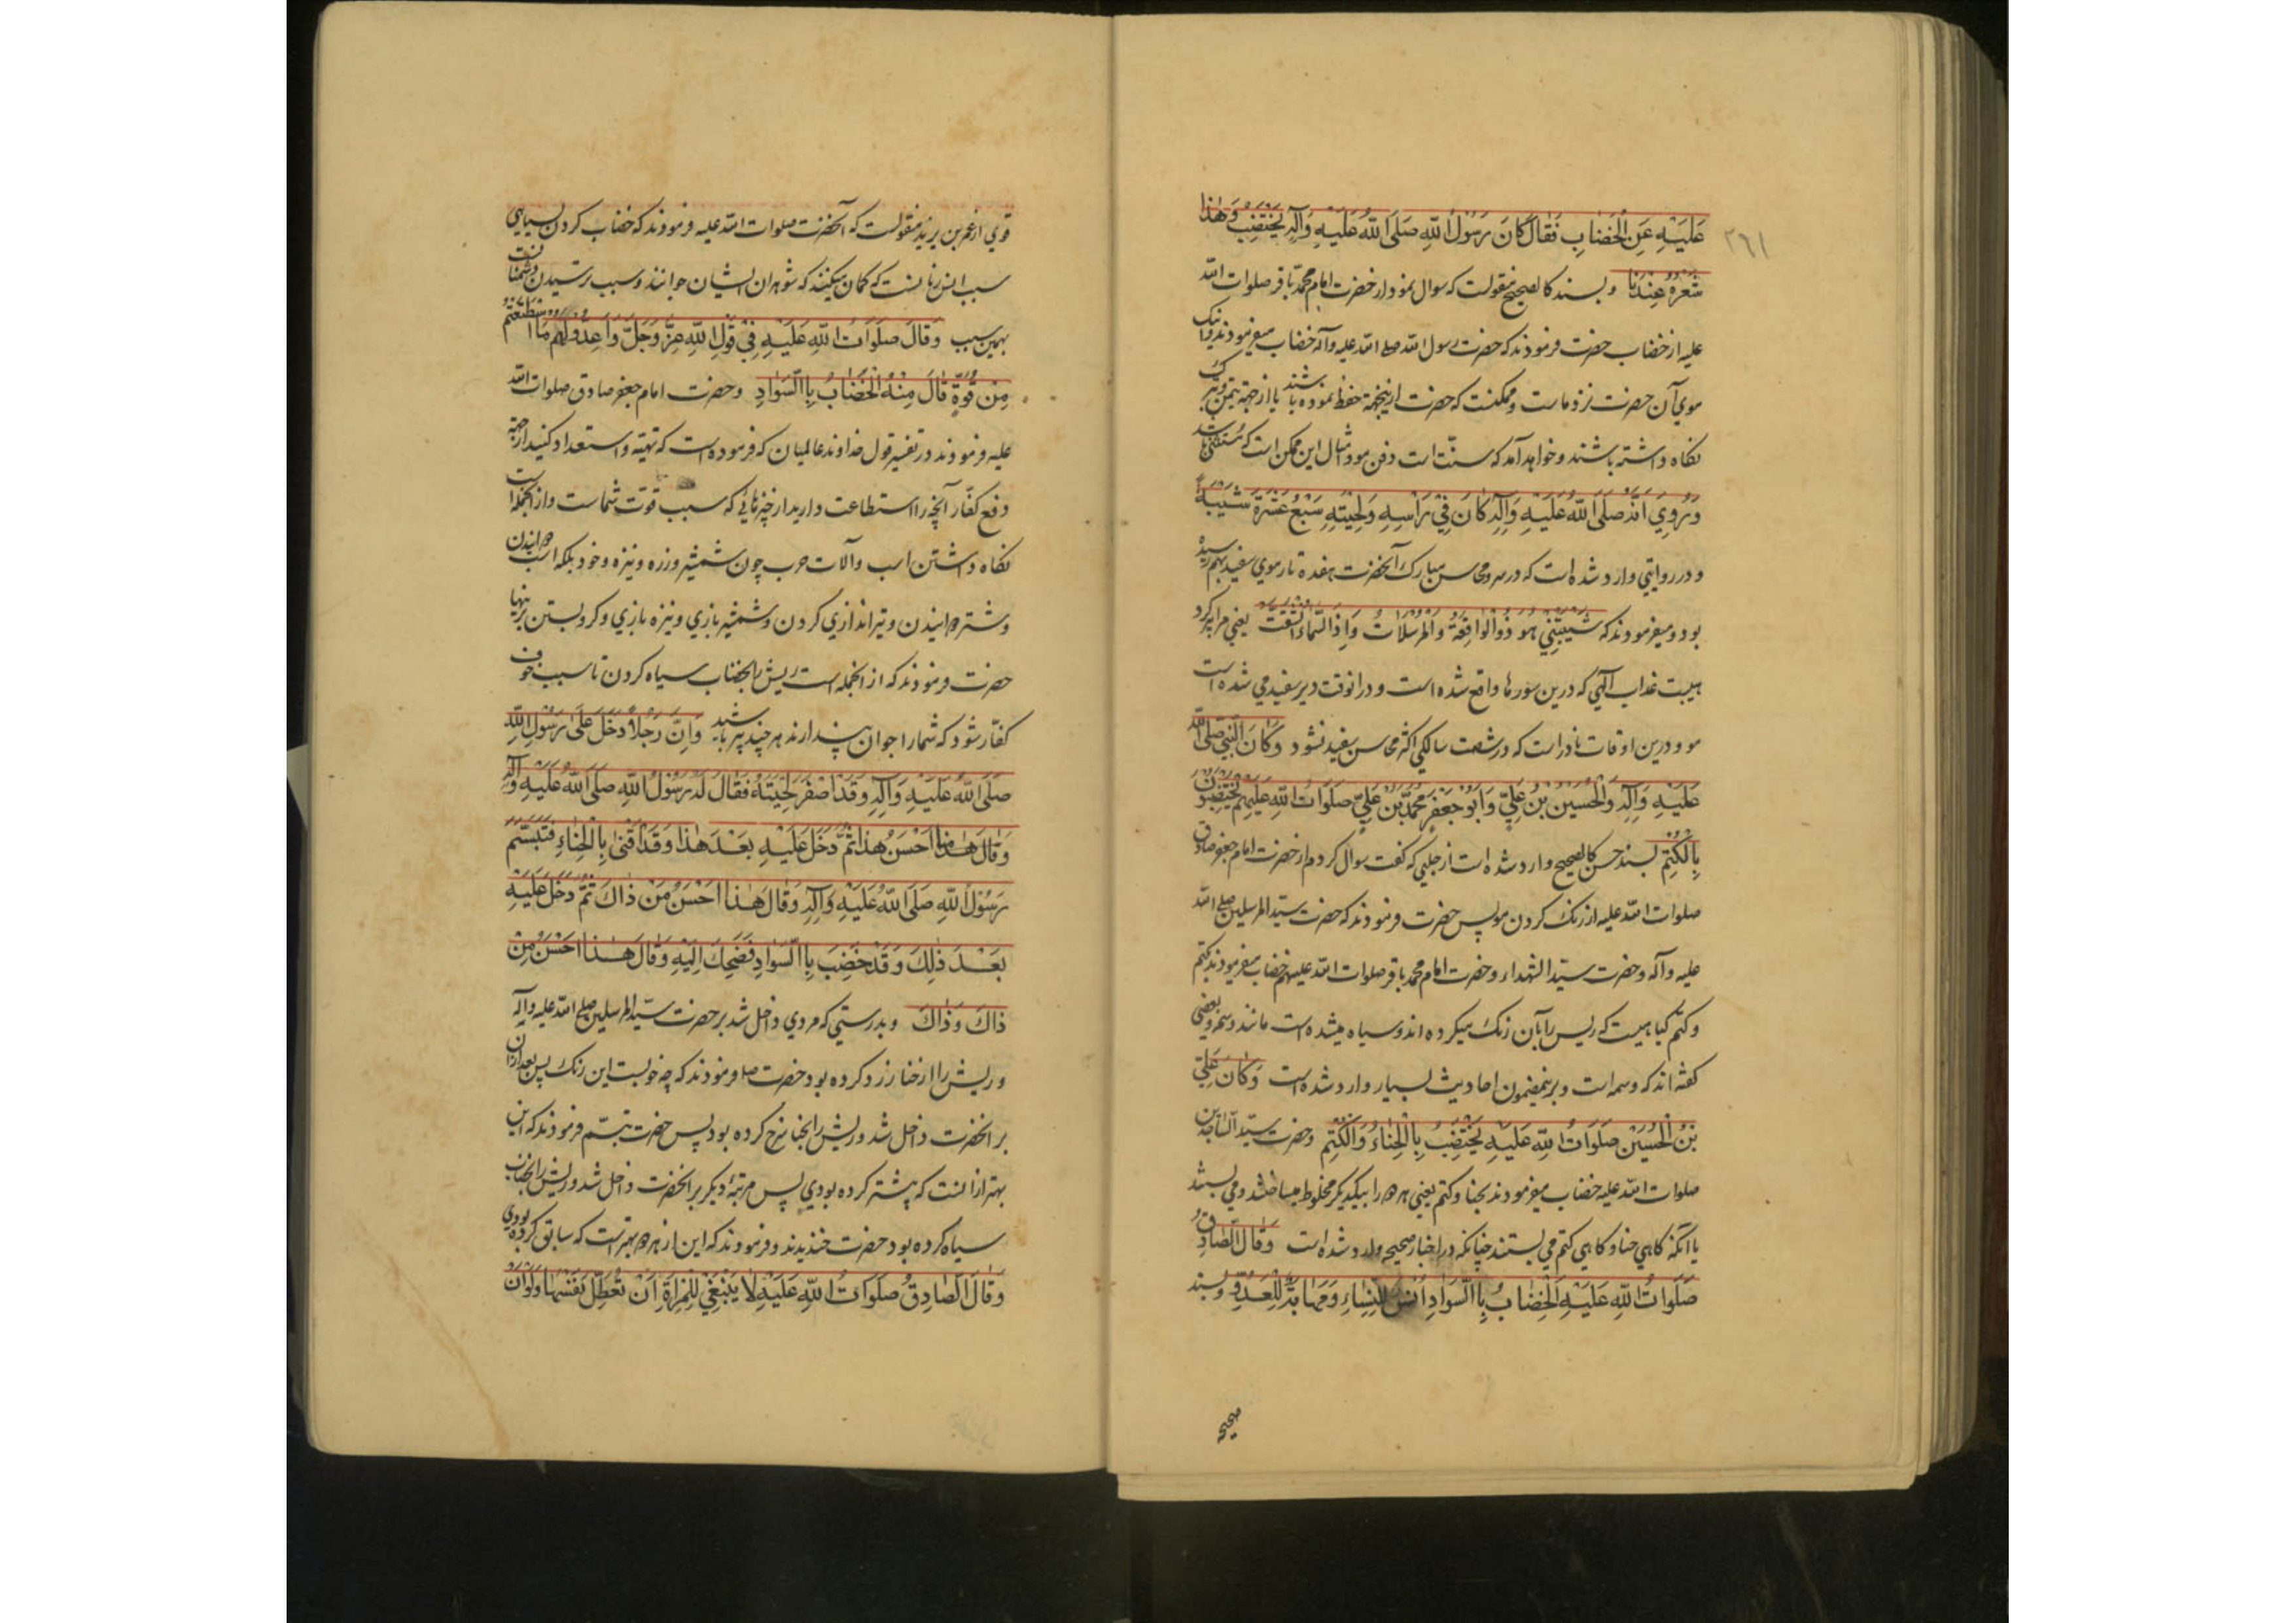 ٢٦١
عَلَيْهِ عَنِ الْخِضَابِ فَقَالَ كَانَ رَسُولُ اللهِ صَلَّى اللهُ عَلَيْهِ وَآلِهِ يَخْتَضِبُ وَهٰذَا
شَعْرُهُ عِنْدَنَا وبسند كالصحيح منقولست كه سوال نمود از حضرت امام محمد باقر صلوات الله
عليه از خضاب حضرت فرمودند كه حضرت رسول الله صلى الله عليه وآله خضاب ميفرمودند واينك
موي آن حضرت نزد ماست وممكنست كه حضرت از اينجهة حفظ نموده باشند يا از جهة تيمن وتبرك
نكاه داشته باشند وخواهد آمد كه سنّت است دفن مو وامثال اين ممكن است كه مستثنى باشد
وَرُوِيَ أَنَّهُ صَلَّى اللهُ عَلَيْهِ وَآلِهِ كَانَ فِي رَأْسِهِ وَلِحْيَتِهِ سَبْعَ عَشْرَةَ شَيْبَةً
ودر روايتي وارد شده است كه در سر ومحاسن مبارك آنحضرت هفده تار موي سفيد بهم رسيده
بود وميفرمودند كه شَيَّبَتْنِي هُودُ وَالْوَاقِعَةُ وَالْمُرْسَلَاتُ وَإِذَا السَّمَاءُ انْشَقَّتْ يعني مرا پير كرد
هيبت عذاب الهي كه درين سورها واقع شده است ودر انوقت دير سفيد مي شده است
مو ودرين اوقات نادر است كه در شصت سالكي اكثر محاسن سفيد نشود وَكَانَ النَّبِيُّ صَلَّى اللهُ
عَلَيْهِ وَآلِهِ وَالْحُسَيْنُ بْنُ عَلِيٍّ وَأَبُو جَعْفَرٍ مُحَمَّدُ بْنُ عَلِيٍّ صَلَوَاتُ اللهِ عَلَيْهِمْ يَخْتَضِبُونَ
بِالْكَتَمِ بسند حسن كالصحيح وارد شده است از حلبي كه كفت سوال كردم از حضرت امام جعفر صادق
صلوات الله عليه از رنك كردن مو پس حضرت فرمودند كه حضرت سيّد المرسلين صلى الله
عليه وآله وحضرت سيّد الشهداء وحضرت امام محمد باقر صلوات الله عليهم خضاب ميفرمودند بكتم
وكتم كياهيست كه ريس را بآن رنك ميكرده اند وسياه ميشده است مانند وسمه وبعضي
كفته اند كه وسمه است وبرينمضمون احاديث بسيار وارد شده است وَكَانَ عَلِيُّ
بْنُ الْحُسَيْنِ صَلَوَاتُ اللهِ عَلَيْهِ يَخْتَضِبُ بِالْحِنَّاءِ وَالْكَتَمِ وحضرت سيّد الساجدين
صلوات الله عليه خضاب ميفرمودند بحنا وكتم يعني هر دو را بيكديكر مخلوط ميساختند ومي بستند
يا آنكه كاهي حنا وكاهي كتم مي بستند چنانكه در اخبار صحيحه وارد شده است وَقَالَ الصَّادِقُ
صَلَوَاتُ اللهِ عَلَيْهِ الْخِضَابُ بِالسَّوَادِ أُنْسٌ لِلنِّسَاءِ وَمَهَابَةٌ لِلْعَدُوِّ وبسند
صحيحه
قوي از عمر بن يزيد منقولست كه آنحضرت صلوات الله عليه فرمودند كه خضاب كردن بسياهي
سبب انس زنانست كه كمان ميكنند كه شوهران ايشان جوانند وسبب ترسيدن دشمنانست
بهمين سبب وَقَالَ صَلَوَاتُ اللهِ عَلَيْهِ فِي قَوْلِ اللهِ عَزَّ وَجَلَّ وَأَعِدُّوا لَهُمْ مَا اسْتَطَعْتُمْ
مِنْ قُوَّةٍ قَالَ مِنْهُ الْخِضَابُ بِالسَّوَادِ وحضرت امام جعفر صادق صلوات الله
عليه فرمودند در تفسير قول خداوند عالميان كه فرموده است كه تهيّه واستعداد كنيد از جهة
دفع كفّار آنچه را استطاعت داريد از چيزهائي كه سبب قوّت شماست واز انجمله است
نكاه داشتن اسب وآلات حرب چون شمشير وزره ونيزه وخود بلكه اسب دوانيدن
وشتر دوانيدن وتير اندازي كردن وشمشير بازي ونيزه بازي وكرو بستن برينها
حضرت فرمودند كه از انجمله است ريش را بخضاب سياه كردن تا سبب خوف
كفّار شود كه شما را جوان پندارند هر چند پير باشيد وَإِنَّ رَجُلًا دَخَلَ عَلَى رَسُولِ اللهِ
صَلَّى اللهُ عَلَيْهِ وَآلِهِ وَقَدْ أَصْفَرَ لِحْيَتَهُ فَقَالَ لَهُ رَسُولُ اللهِ صَلَّى اللهُ عَلَيْهِ وَآلِهِ
وَقَالَ هٰذَا مَا أَحْسَنَ هٰذَا ثُمَّ دَخَلَ عَلَيْهِ بَعْدَ هٰذَا وَقَدْ أَقْنَى بِالْحِنَّاءِ فَتَبَسَّمَ
رَسُولُ اللهِ صَلَّى اللهُ عَلَيْهِ وَآلِهِ وَقَالَ هٰذَا أَحْسَنُ مِنْ ذَاكَ ثُمَّ دَخَلَ عَلَيْهِ
بَعْدَ ذٰلِكَ وَقَدْ خَضَبَ بِالسَّوَادِ فَضَحِكَ إِلَيْهِ وَقَالَ هٰذَا أَحْسَنُ مِنْ
ذَاكَ وَذَاكَ وبدرستي كه مردي داخل شد بر حضرت سيّد المرسلين صلى الله عليه وآله
وريش را از حنا زرد كرده بود حضرت فرمودند كه چه خوبست اين رنك پس بعد از ان
بر انحضرت داخل شد وريش را بحنا سرخ كرده بود پس حضرت تبسّم فرمودند كه اين
بهتر از انست كه پيشتر كرده بودي پس مرتبۀ ديكر بر انحضرت داخل شد وريش را بخضاب
سياه كرده بود حضرت خنديدند وفرمودند كه اين از هر دو بهتر است كه سابق كرده بودي
وَقَالَ الصَّادِقُ صَلَوَاتُ اللهِ عَلَيْهِ لَا يَنْبَغِي لِلْمَرْأَةِ أَنْ تُعَطِّلَ نَفْسَهَا وَلَوْ أَنْ